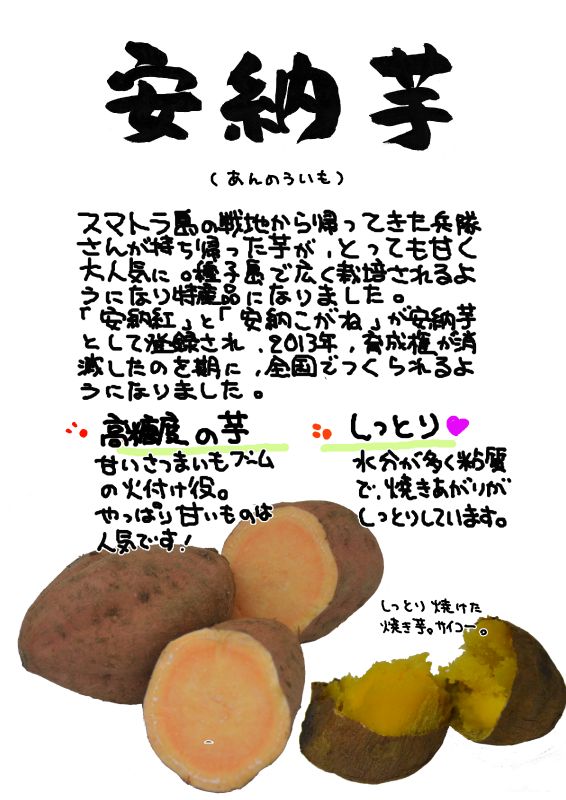 安納芋
(あんのういも)
スマトラ島の戦地から帰ってきた兵隊
さんが持ち帰った芋が、とっても甘く
大人気に。種子島で広く栽培されるよ
うになり特産品になりました。
「安納紅」と「安納こがね」が安納芋
として登録され、2013年、育成権が消
滅したのを期に、全国でつくられるよ
うになりました。
高糖度の芋
甘いさつまいもブーム
の火付け役。
やっぱり甘いものは
人気です!
しっとり
水分が多く粘質
で、焼きあがりが
しっとりしています。
しっとり焼けた
焼き芋。サイコー。